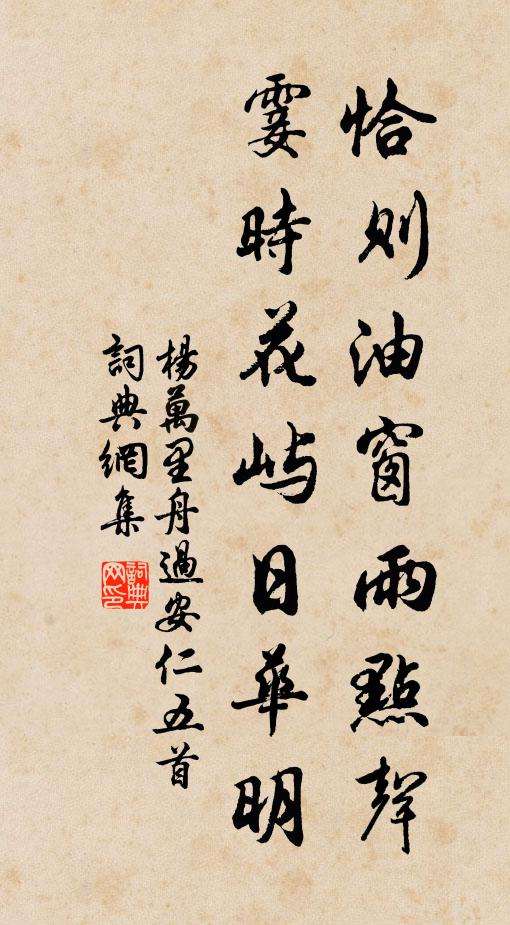 恰則油窗雨點聲
霎時花嶼日華明
楊萬里舟過安仁五首
詞典網集
詞典网印